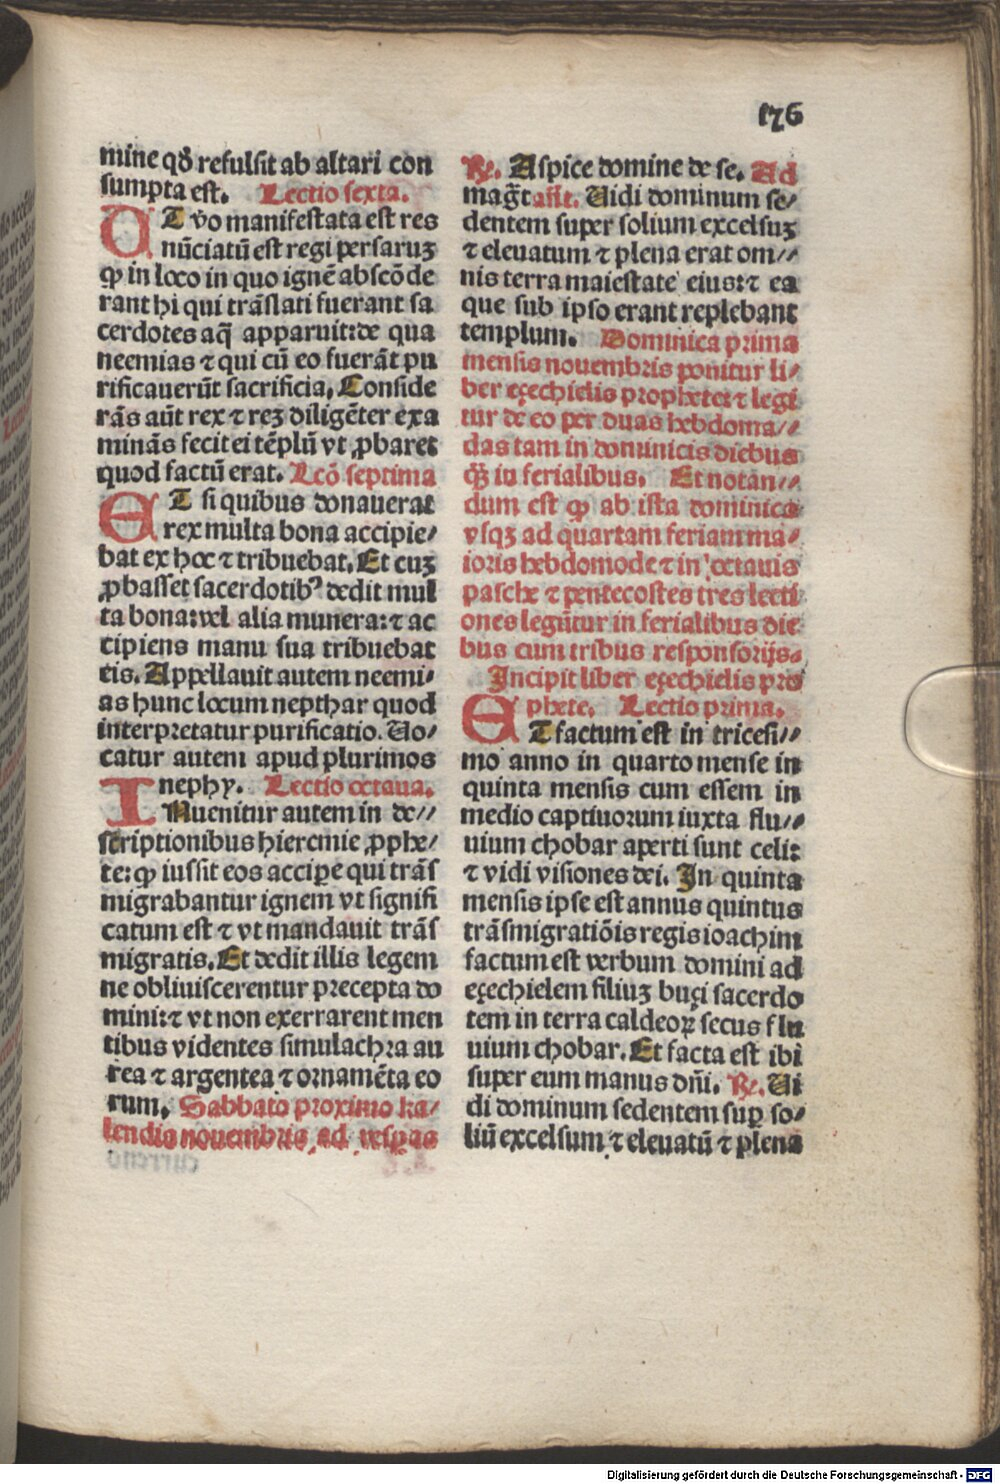 176
mine qď refulsit ab altari con
sumpta est. Lectio sexta.
UT v̊o manifestata est res
nūciatū est regi persaruʒ
ꝙ in loco in quo ignē abscōde
rant hi qui trāslati fuerant sa
cerdotes aq̄ apparuit: de qua
neemias ⁊ qui cū eo fuerāt pu
rificauerūt sacrificia. Conside
rās aūt rex ⁊ reʒ diligēter exa
minās fecit ei tēplū vt ꝓbaret
quod factū erat. Lcō septima
ET si quibus donauerat
rex multa bona accipie⸗
bat ex hoc ⁊ tribuebat. Et cuʒ
ꝓbasset sacerdotibꝰ dedit mul
ta bona: vel alia munera: ⁊ ac
cipiens manu sua tribuebat
eis. Appellauit autem neemi⸗
as hunc locum nepthar quod
interpretatur purificatio. Uo⸗
catur autem apud plurimos
nephy. Lectio octaua.
INuenitur autem in de⸗
scriptionibus hieremie ꝓphe⸗
te: ꝙ iussit eos accipe qui trās
migrabantur ignem vt signifi
catum est ⁊ vt mandauit trās
migratis. Et dedit illis legem
ne obliuiscerentur precepta do
mini: ⁊ vt non exerrarent men
tibus videntes simulachra au
rea ⁊ argentea ⁊ ornamēta eo
rum. Sabbato proximo ka⸗
lendis nouembris ad vespas
℞. Aspice domine de se. Ad
mag̃t añt. Uidi dominum se⸗
dentem super solium excelsuʒ
⁊ eleuatum ⁊ plena erat om⸗
nis terra maiestate eius: ⁊ ea
que sub ipso erant replebant
templum. Dominica prima
mensis nouembris ponitur li⸗
ber eçechielis prophete: ⁊ legi
tur de eo per duas hebdoma⸗
das tam in dominicis diebus
q̄ʒ in ferialibus. Et notan⸗
dum est ꝙ ab ista dominica
vsqʒ ad quartam feriam ma⸗
ioris hebdomode ⁊ in octauis
pasche ⁊ pentecostes tres lecti
ones legūtur in ferialibus die
bus cum tribus responsorijs.
Incipit liber eçechielis pro
phete. Lectio prima.
ET factum est in tricesi⸗
mo anno in quarto mense in
quinta mensis cum essem in
medio captiuorum iuxta flu⸗
uium chobar aperti sunt celi:
⁊ vidi visiones dei. In quinta
mensis ipse est annus quintus
trāsmigratiōis regis ioachim
factum est verbum domini ad
eçechielem filiuʒ buçi sacerdo
tem in terra caldeoꝝ secus flu
uium chobar. Et facta est ibi
super eum manus dñi. ℞. Ui
di dominum sedentem sup so⸗
liū excelsum ⁊ eleuatū ⁊ plena
Digitalisierung gefördert durch die Deutsche Forschungsgemeinschaft - DFG